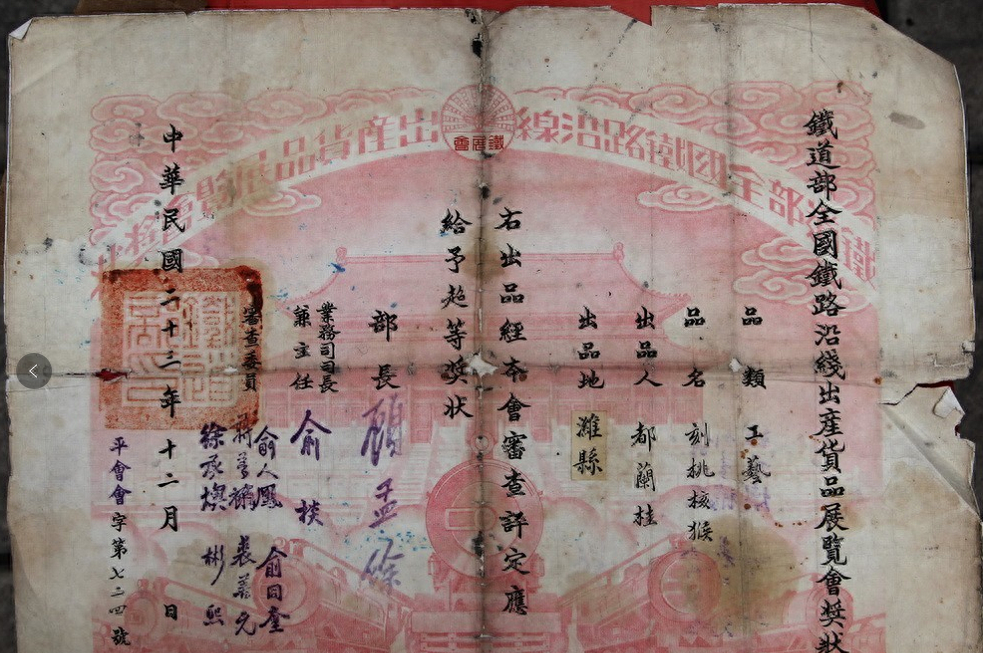 鐵道部全國鐵路沿綫出產貨品展覽會獎狀
鐵展會
鐵道部全國鐵路沿線出產貨品展覽會獎狀
品類 工藝
品名 刻桃核猴
出品人 都蘭桂
出品地 濰縣
右出品經本會審查評定應
給予超等獎狀
部長 顧孟餘
業務司司長
兼主任 俞棪
審查委員
俞人鳳 俞同奎
裴益元
徐承燠 彬熙
中華民國二十三年十二月 日
平會會字第七二四號